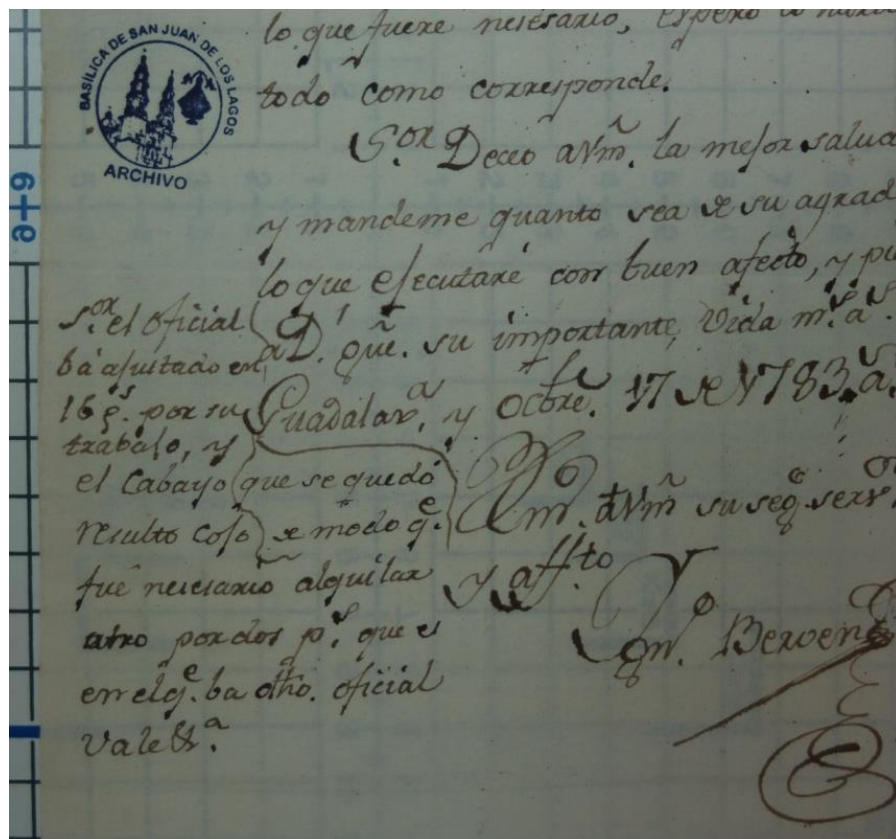 BASÍLICA DE SAN JUAN DE LOS LAGOS
ARCHIVO
6+e
lo que fuere nesesario, espero lo
todo como corresponde.
S.or Deceo a Vm̃. la mejor salud
y mandeme quanto sea de su agrad
lo que ejecutaré con buen afecto, y pu
a D.s gũe. su importante, Vida m.s a.s
Guadalax.a, y Octbre. 17 de 1783. a.s
a Vm̃ su seg.o serv.or
y aff.to
Berven
S.or el oficial
ba ajustado en
16 p.s por su
trabajo, y
el Cabayo que se quedó
resulto cojo de modo q.e
fué nesesario alquilar
otro por dos p.s que es
en el q.e ba dho. oficial
Vale &.a